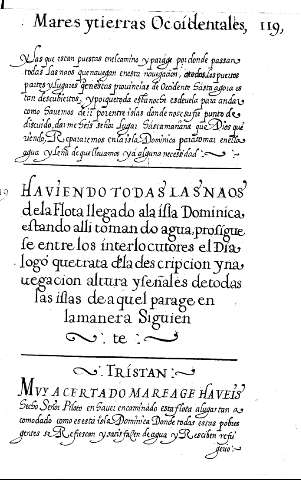 Mares ytierras Ocçidentales, 119,
las que estan puestas enelcamino y paraje por donde passan
todas las naos que nauegan en esta nauegaçion, atodos los puertos
partes y lugares
tan descubiertos, y porque toda esta noche es de vela para andar
como hauemos de ir por entre islas donde no se sufre punto de
discuido, dar me hés Señor lugar hasta mañana que Dios que
riendo, Repararemos en la isla Dominica para tomar en ella
agua y leña de que lleuamos ya alguna neçesidad
HAVIENDO TODAS LAS NAOS
dela Flota llegado ala isla Dominica,
estando alli tomando agua, prosigue
se entre los interlocutores el Dia
logo que trata dela descripcion y na
uegacion altura y señales de todas
las islas de aquel parage en
la manera Siguien
te
TRISTAN
MVY ACERTADO MAREAGE HAVEIS
hecho Señor Piloto en hauer encaminado esta flota a lugar tan a
comodado como es esta isla Dominica Donde todas estas pobres
gentes se Refrescan y satisfazen de agua y Resciben refri
gerio